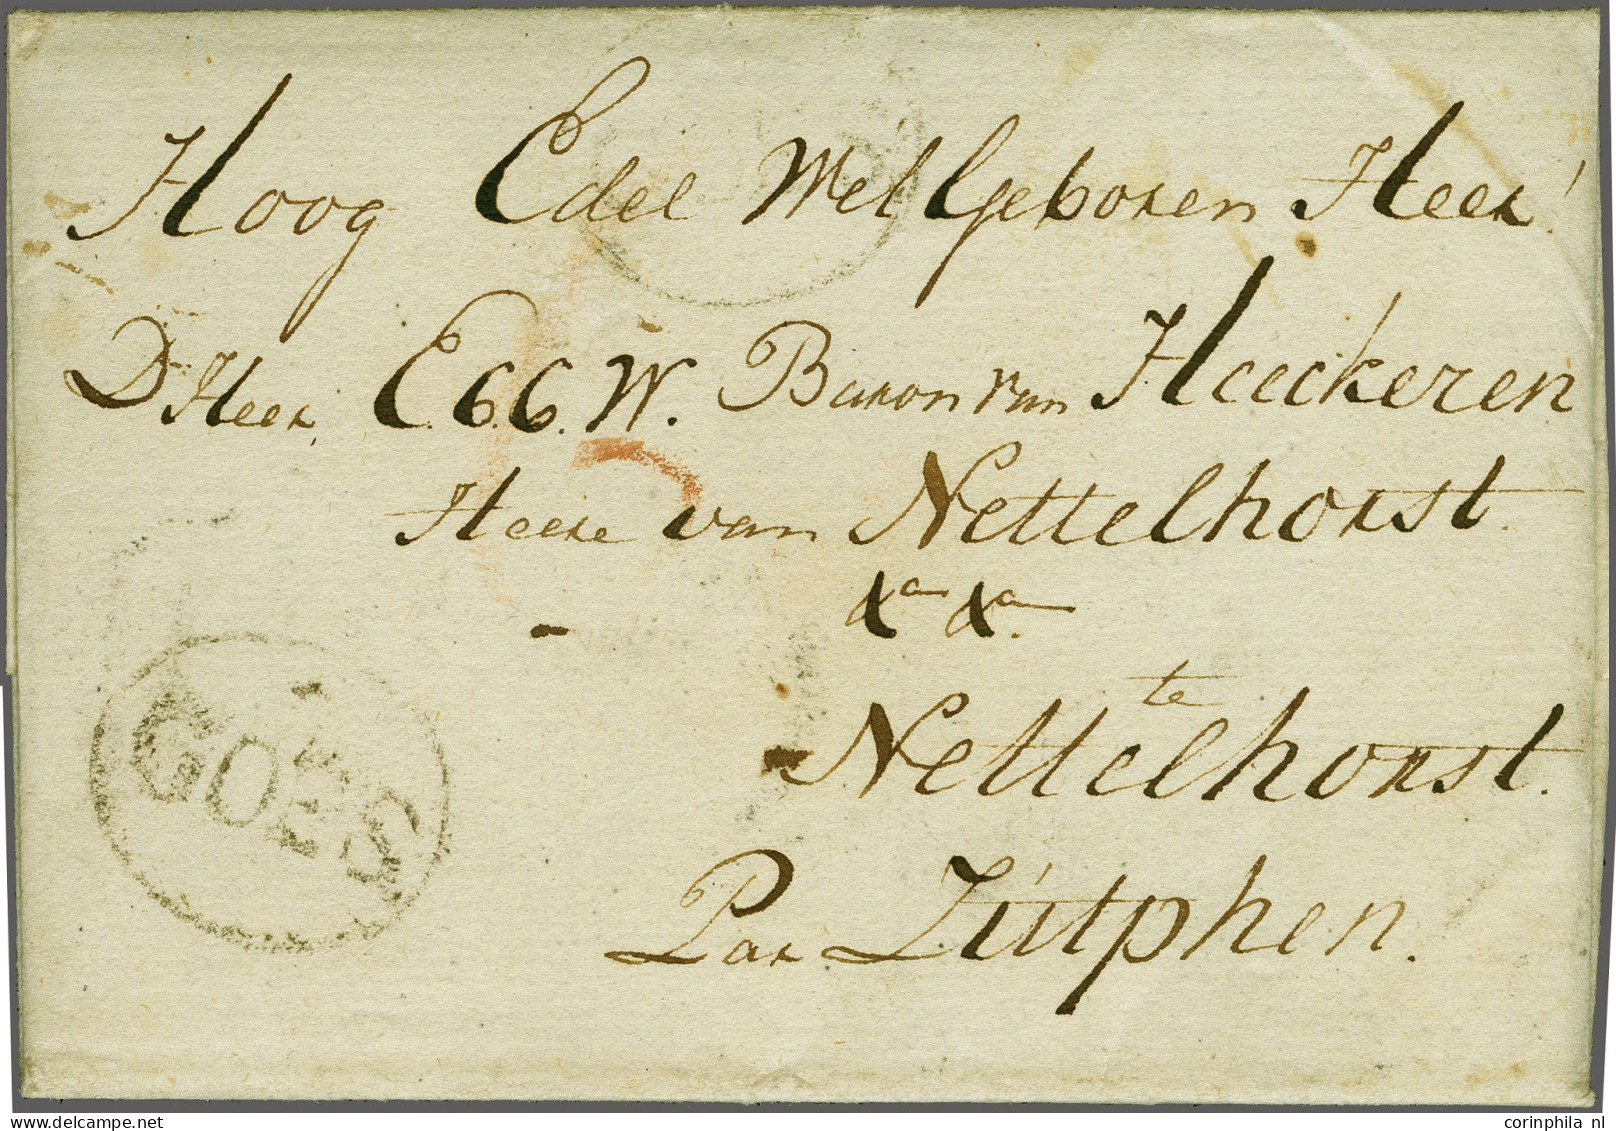 Hoog Edel Wel Geboren Heer!
D Heer, E. G. G. W. Baron van Heeckeren
Heere van Nettelhorst.
&a &a.
te
Nettelhorst.
Par Zútphen.
GOES
corinphila nl